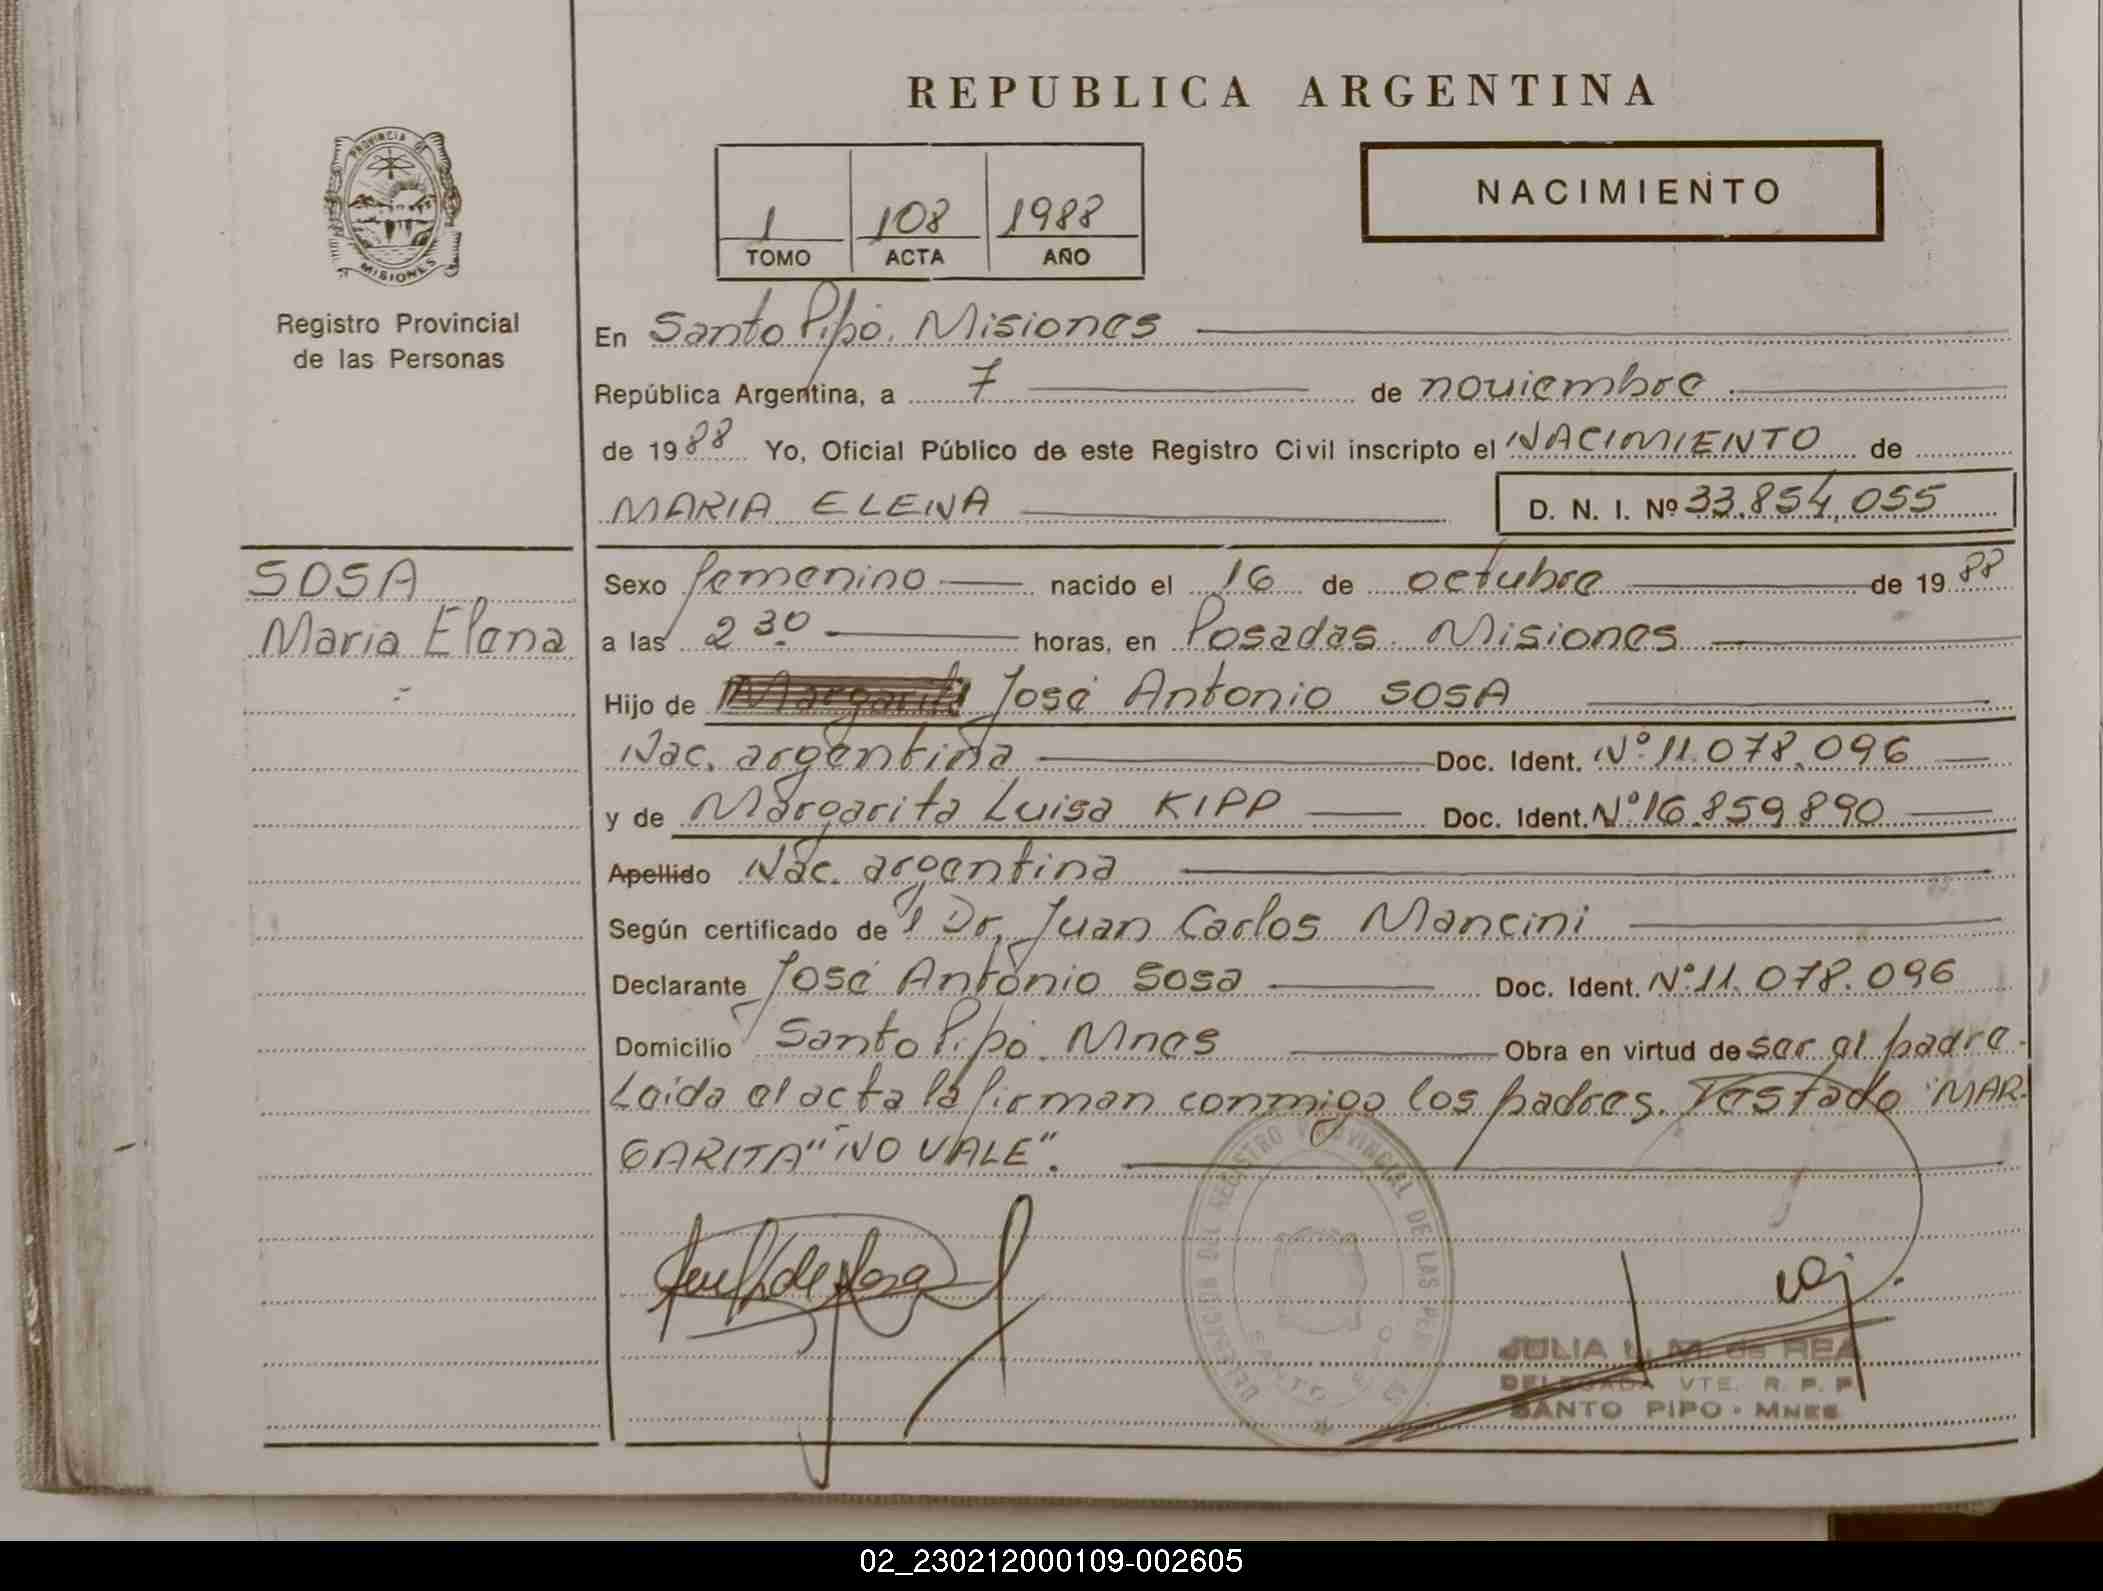 REPUBLICA ARGENTINA
PROVINCIA DE
MISIONES
Registro Provincial
de las Personas
1 108 1988
TOMO ACTA AÑO
NACIMIENTO
En Santo Pipó. Misiones
República Argentina, a 7 de noviembre
de 1988 Yo, Oficial Público de este Registro Civil inscripto el NACIMIENTO de
MARIA ELENA D. N. I. Nº 33.854.055
SOSA
Maria Elena
Sexo femenino nacido el 16 de octubre de 1988
a las 2 30 horas, en Posadas. Misiones
Hijo de Margarita José Antonio SOSA
Nac. argentina Doc. Ident. Nº 11.078.096
y de Margarita Luisa KIPP Doc. Ident. Nº 16.859.890
Apellido Nac. argentina
Según certificado del Dr. Juan Carlos Mancini
Declarante José Antonio Sosa Doc. Ident. Nº 11.078.096
Domicilio Santo Pipó. Mnes Obra en virtud de ser el padre.
Leída el acta la firman conmigo los padres. Testado "MAR-
GARITA" "NO VALE".
DELEGACION DEL REGISTRO PROVINCIAL DE LAS
SANTO PIPO
JULIA L. M. de REA
DELEGADA VTE. R. P. P.
SANTO PIPO - MNES
02_230212000109-002605